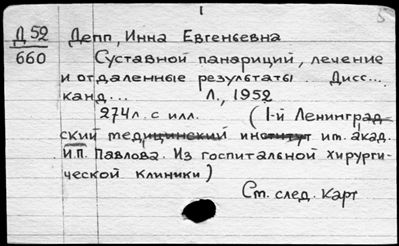 1
5
Д 52
660
Депп, Инна Евгеньевна
Суставной панариций, лечение
и отдаленные результаты. Дисс...
канд... Л., 1952
274 л. с илл. (1-й Ленинград-
ский медицинский институт им. акад.
И.П. Павлова. Из госпитальной хирурги-
ческой клиники)
См. след. карт